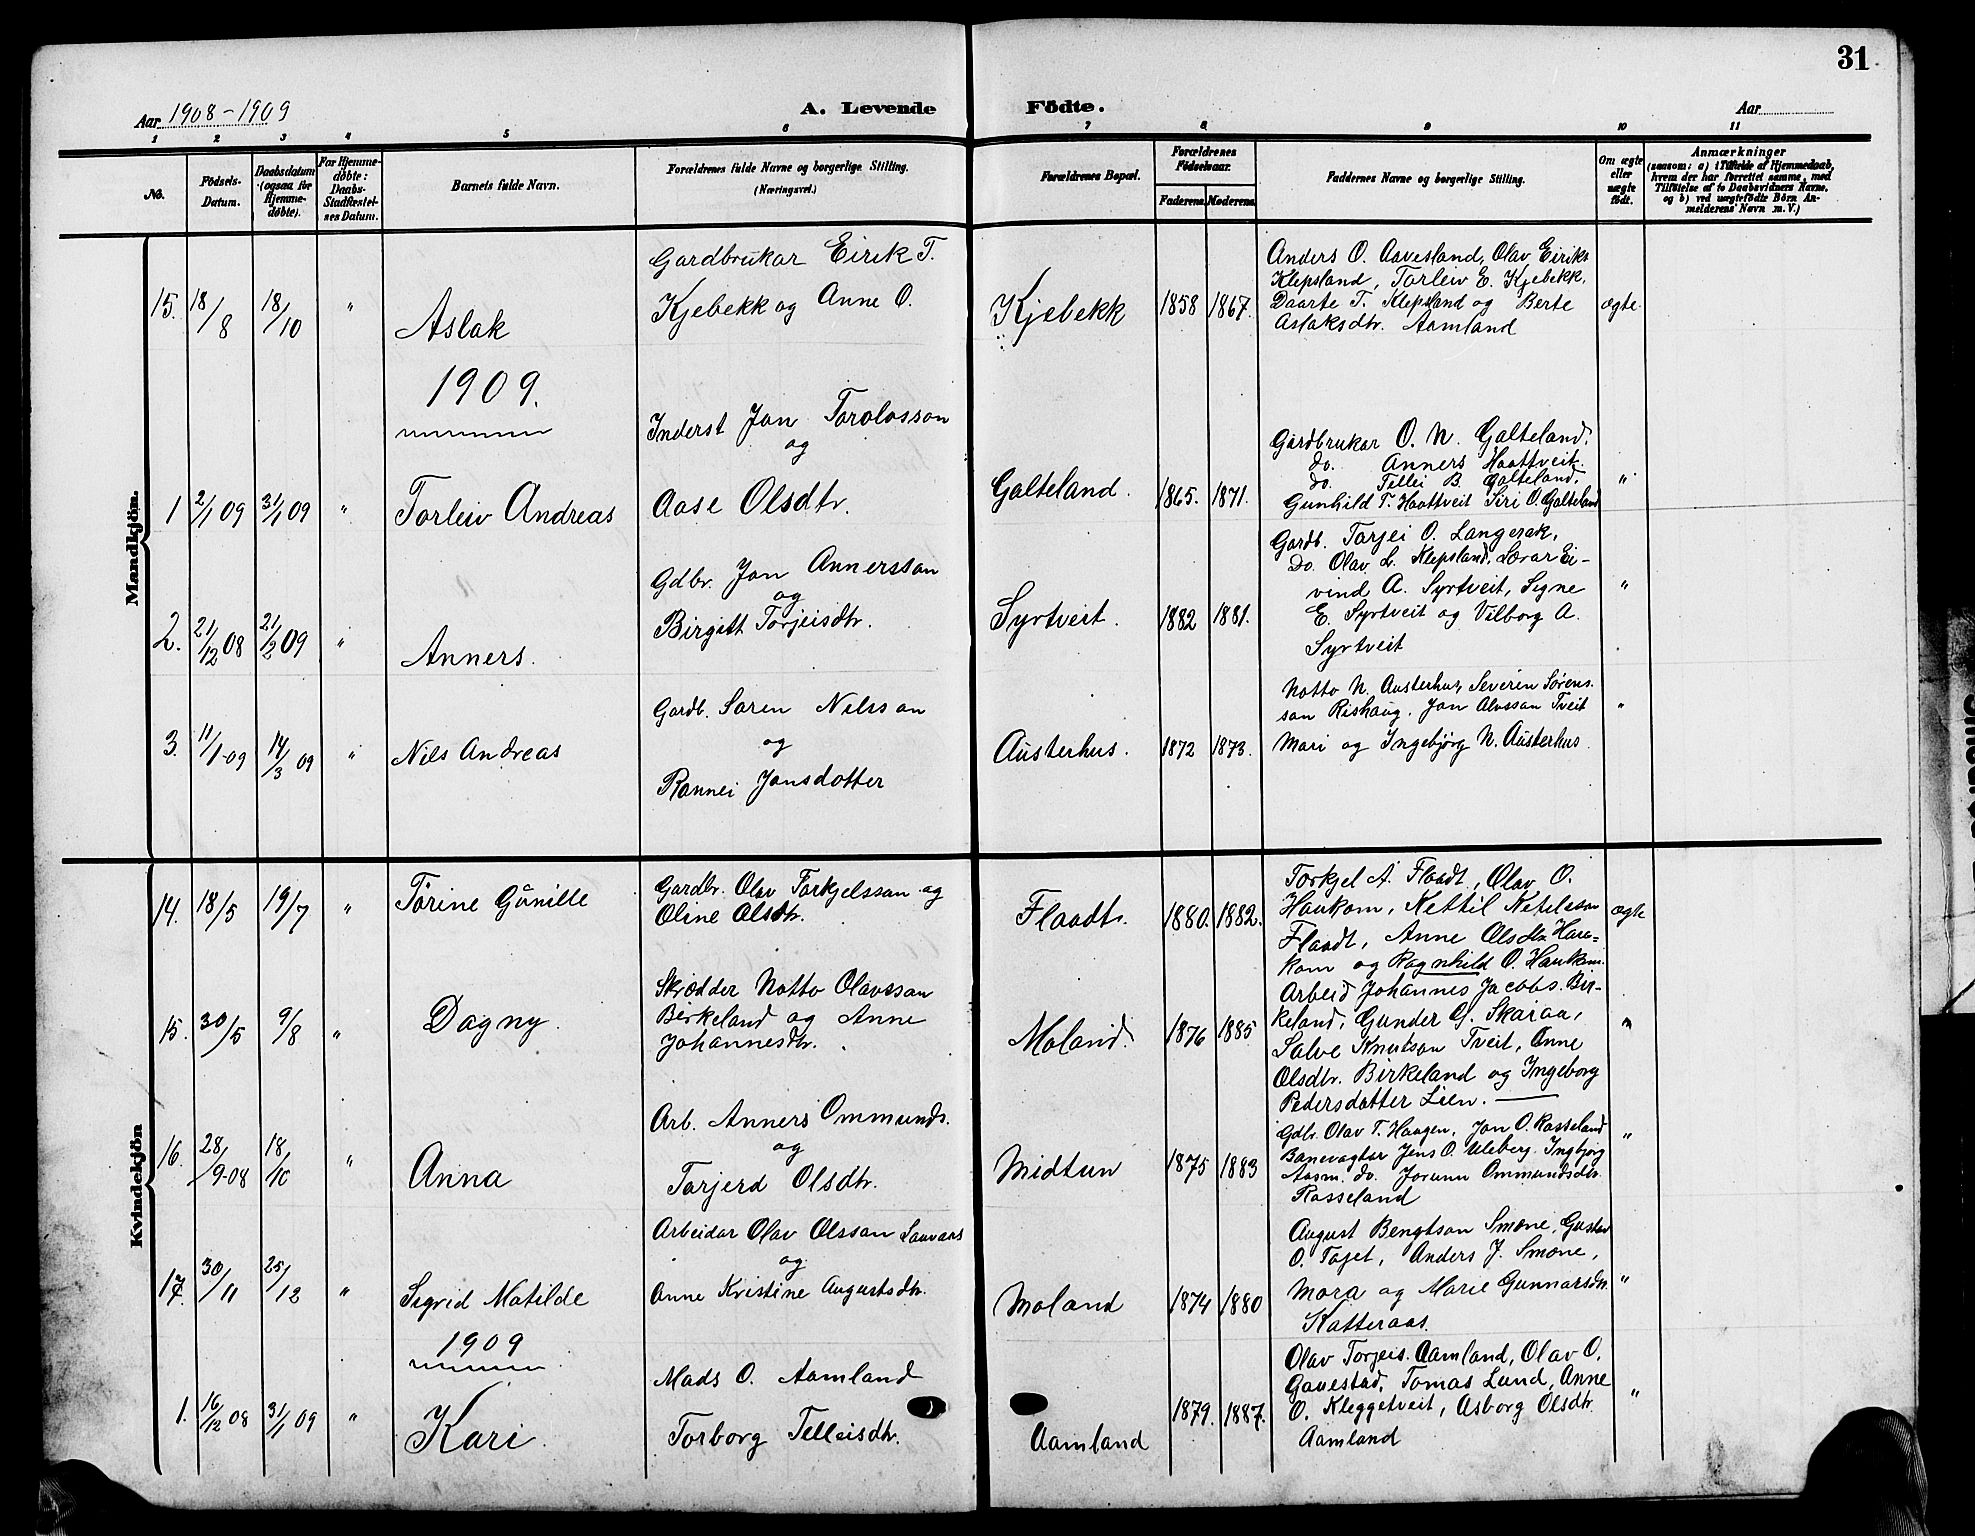 31
Aar 1908-1909
A. Levende Födte.
Aar
1 2 3 4 5 6 7 8 9 10 11
No.
Födsels-Datum.
Daabsdatum (ogsaa for Hjemme-døbte).
For Hjemme-døbte: Daabs-Stadfæstel-ses Datum.
Barnets fulde Navn.
Forældrenes fulde Navne og borgerlige Stilling. (Næringsvei.)
Forældrenes Bopæl.
Forældrenes Födselsaar.
Faderens. Moderens.
Faddernes Navne og borgerlige Stilling.
Om ægte eller uægte født.
Anmærkninger
(saasom: a) i Tilfælde af Hjemmedaab,
hvem der har forrettet samme, med
Tilføielse af to Daabsvidners Navne,
og b) ved uægtefødte Börn An-
melderens Navn m.V.)
Mandkjön.
Gardbrukar Eirik T.
Kjebekk og Anne O.
15. 18/8 18/10 " Aslak
Kjebekk 1858 1867. ægte.
Anders O. Aavesland, Olav Eiriks
Klepsland, Torleiv E. Kjebekk,
Daarte T. Klepsland og Berte
Aslaksdtr. Aamland
1909.
Inderst Jon Tarolosson
og
Aase Olsdtr.
1 2/1 09 31/1 09 " Torleiv Andreas
Galteland. 1865. 1871. "
Gardbrukar O. N. Galteland.
do. Anners Haattveit.
do. Tellei B. Galteland.
Gunhild T. Haattveit Siri O. Galteland
Gdbr. Jon Annersson
og
Birgitt Torjeisdtr.
2. 21/12 08 21/2 09 " Anners.
Syrtveit. 1882 1881. "
Gardb. Torjei O. Langerak,
Do. Olav L. Klepsland, Lærar Ei-
vind A. Syrtveit, Signe
E. Syrtveit og Vilborg A.
Syrtveit
Gardb. Søren Nilsson
og
Rannei Jonsdotter
3. 11/1-09 14/3 09 " Nils Andreas
Austerhus. 1872 1873. "
Notto N. Austerhus, Severin Sørens.
son Rishaug. Jon Alvsson Tveit
Mari og Ingebjørg N. Austerhus.
Kvindekjön
14. 18/5 19/7 " Tørine Gunille
Gardbr. Olav Torkjelsson og
Oline Olsdtr.
Flaadt. 1880. 1882. ægte
Torkjel A. Flaadt, Olav O.
Haukom, Kettil Ketelsson
Flaadt, Anne Olsdtr. Hau-
kom og Ragnhild O. Haukom.
15. 30/5 9/8 " Dagny.
Skrædder Notto Olavsson
Birkeland og Anne
Johannesdtr.
Moland. 1876 1885 "
Arbeid Johannes Jacobs. Bir-
keland, Gunder G. Skaiaa,
Salve Knutson Tveit, Anne
Olsdtr. Birkeland og Ingeborg
Pedersdatter Lien.
16. 28/9-08 18/10 " Anna
Arb. Anners Ommunds.
og
Torjerd Olsdtr.
Midtun 1875 1883 "
Gdbr. Olav T. Haugen, Jon O. Rosseland
Banevagtar Jens O. Uleberg. Ingbjørg
Aasm. do. Jorunn Ommundsdtr.
Rosseland
17. 30/11 25/12 " Sigrid Matilde
Arbeidar Olav Olsson
og
Anne Kristine Augustsdtr.
Moland 1874 1880 "
August Bengtson Smøne, Gustav
O. Tajet, Anders J. Smøne,
Mora og Marie Gunnarsdtr.
Katteraas.
1909
1. 16/12 08 31/1 09 " Kari.
Mads O. Aamland
Torborg Telleisdtr.
Aamland 1879. 1887. "
Olav Torjeis. Aamland, Olav O.
Gauestad, Tomas Lund, Anne
O. Kleggetveit, Asborg Olsdtr.
Aamland